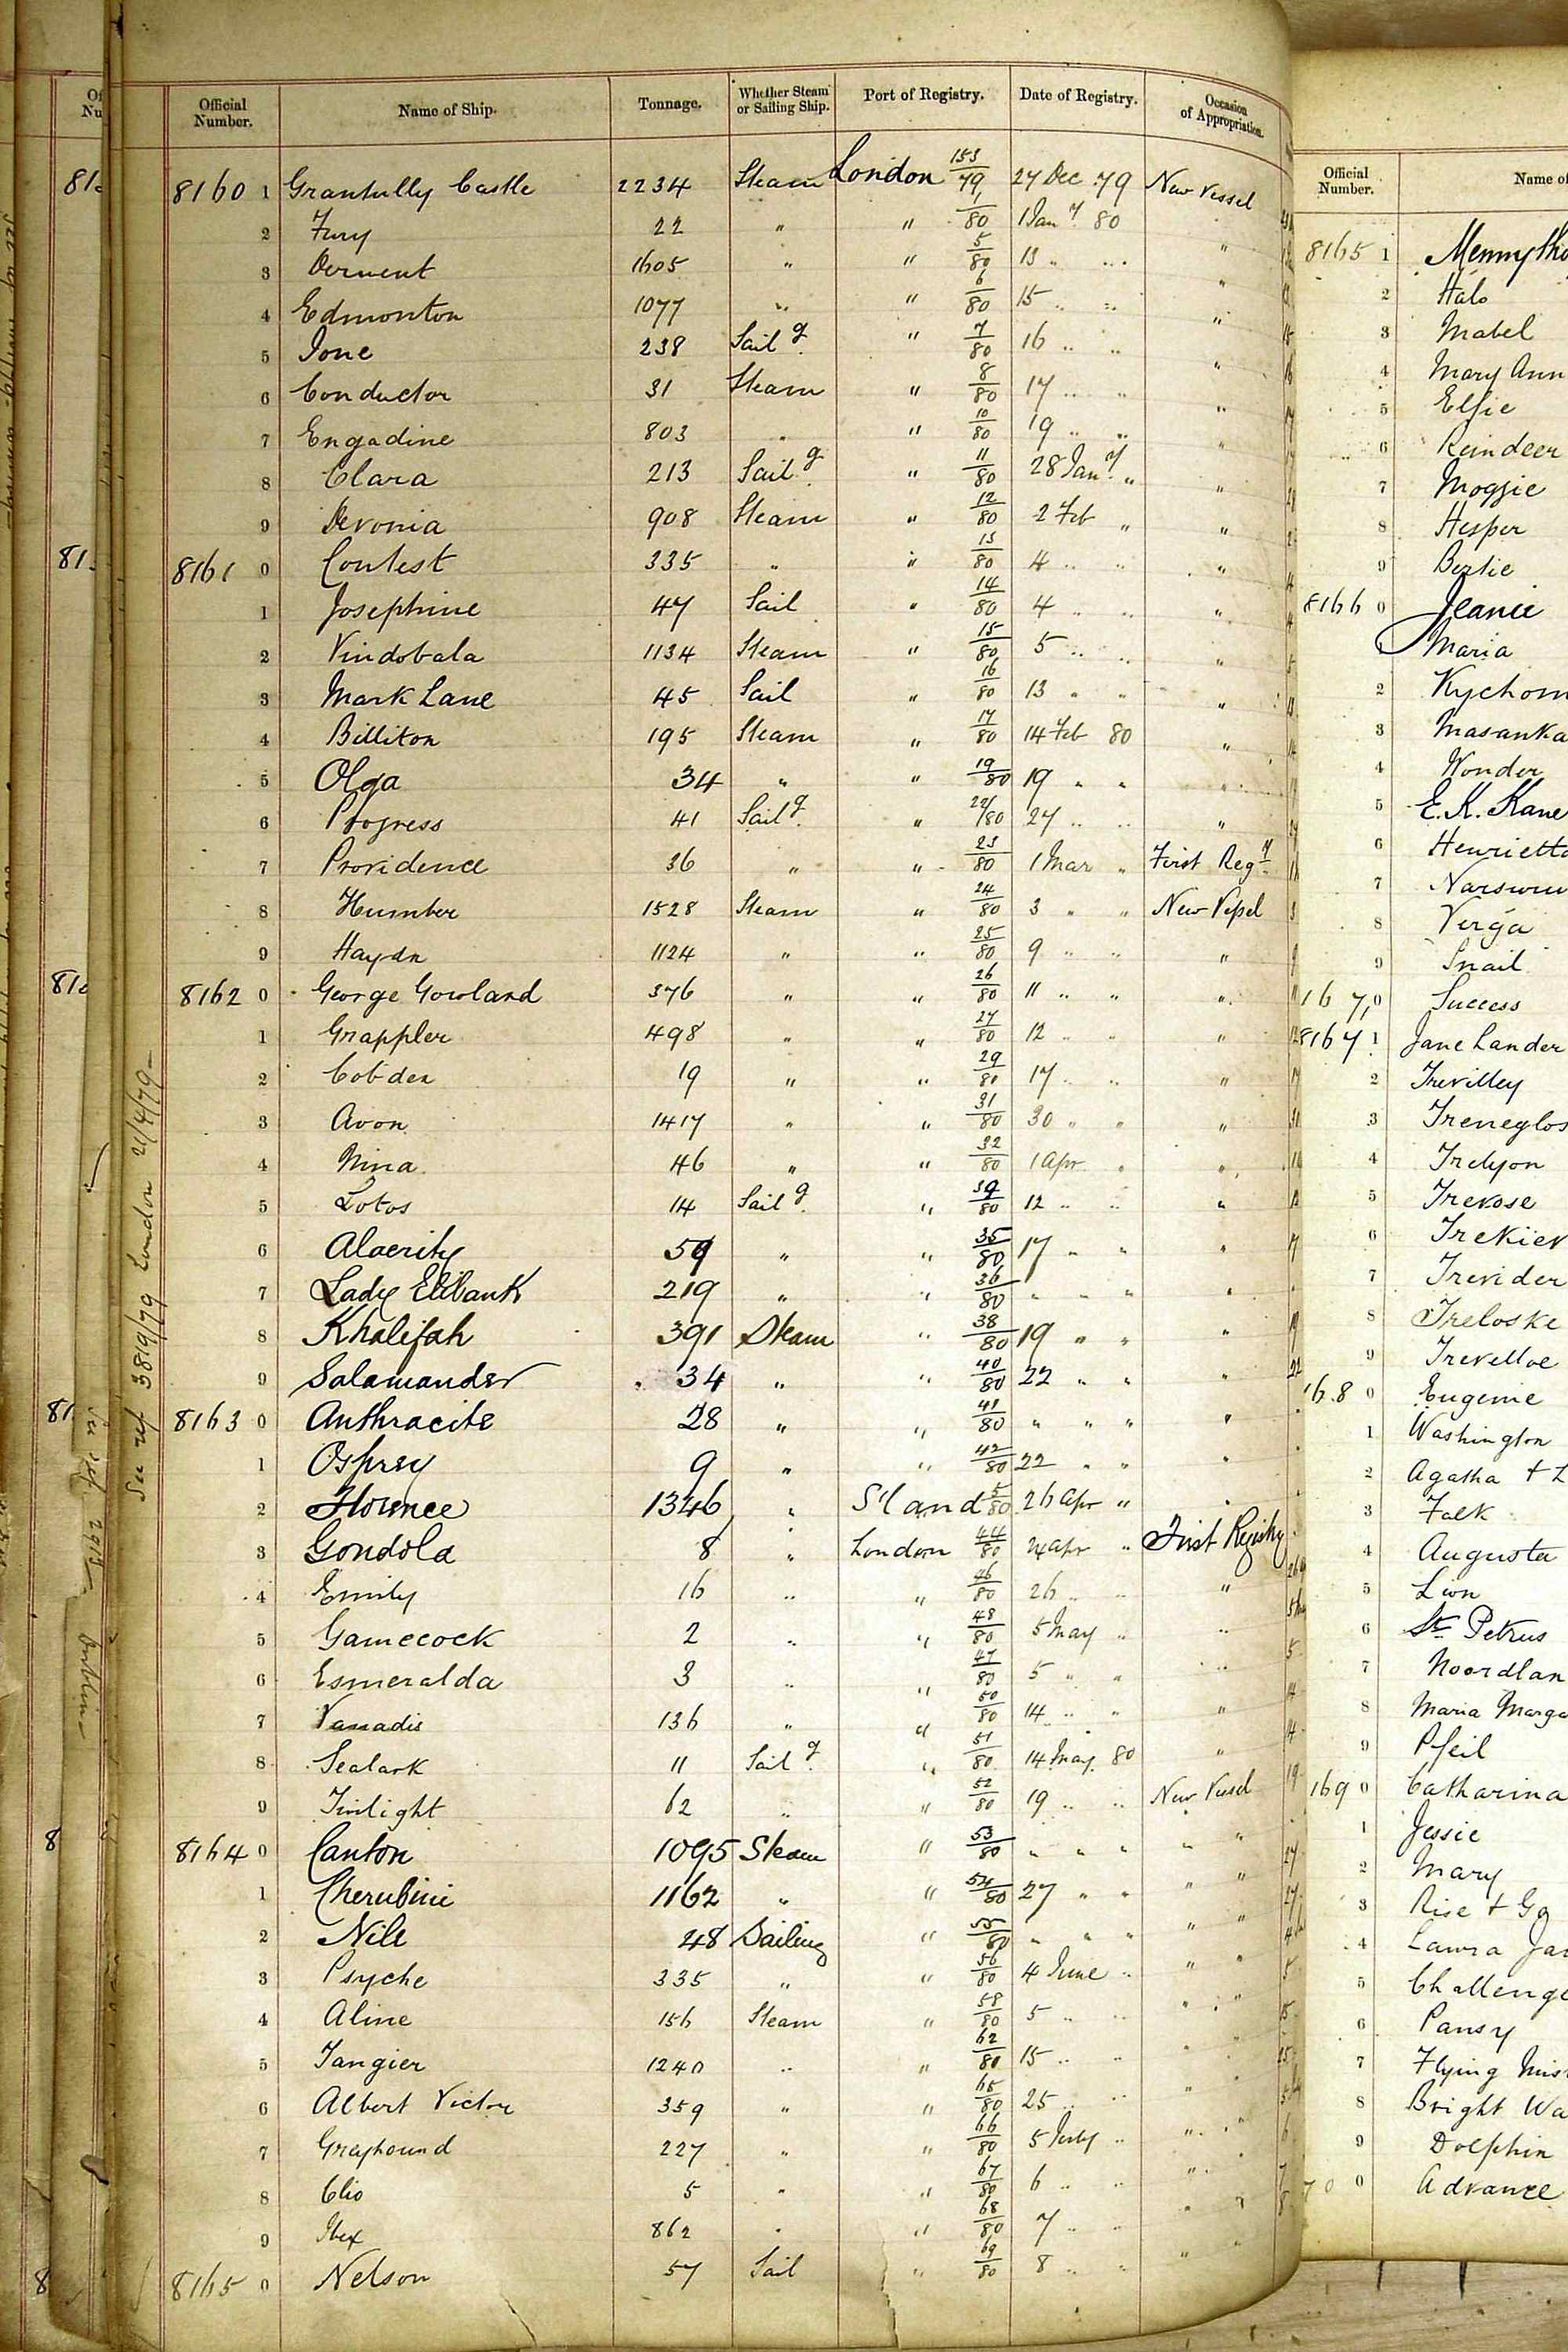 Official Number. Name of Ship. Tonnage. Whether Steam or Sailing Ship. Port of Registry. Date of Registry. Occasion of Appropriation.
8160 1 Grantully Castle 2234 Steam London 153/79 27 Dec 79 New Vessel
2 Fury 22 " " /80 1 Jany 80 "
3 Derwent 1605 " " 5/80 13 " " "
4 Edmonton 1077 " " 6/80 15 " " "
5 Ione 238 Sailg " 7/80 16 " " "
6 Conductor 31 Steam " 8/80 17 " " "
7 Engadine 803 " " 10/80 19 " " "
8 Clara 213 Sailg " 11/80 28 Jany " "
9 Devonia 908 Steam " 12/80 2 Feb " "
8161 0 Contest 335 " " 13/80 4 " " "
1 Josephine 47 Sail " 14/80 4 " " "
2 Vindobala 1134 Steam " 15/80 5 " " "
3 Mark Lane 45 Sail " 16/80 13 " " "
4 Billiton 195 Steam " 17/80 14 Feb 80 "
5 Olga 34 " " 19/80 19 " " "
6 Progress 41 Sailg " 22/80 27 " " "
7 Providence 36 " " 23/80 1 Mar " First Regy
8 Humber 1528 Steam " 24/80 3 " " New Vessel
9 Haydn 1124 " " 25/80 9 " " "
8162 0 George Gowland 376 " " 26/80 11 " " "
1 Grappler 498 " " 27/80 12 " " "
2 Cobden 19 " " 29/80 17 " " "
3 Avon 1417 " " 31/80 30 " " "
4 Nina 46 " " 32/80 1 Apr " "
5 Lotos 14 Sailg " /80 12 " " "
6 Alacrity 59 " " 35/80 17 " " "
7 Lady Elibank 219 " " 36/80 " " " "
8 Khalifah 391 Steam " 38/80 19 " " "
9 Salamander 34 " " 40/80 22 " " "
8163 0 Anthracite 28 " " 41/80 " " " "
1 Osprey 9 " " 42/80 22 " " "
2 Florence 1346 " S'land 5/80 26 Apr " "
3 Gondola 8 " London 44/80 24 Apr " First Registry
4 Emily 16 " " 46/80 26 " " "
5 Gamecock 2 " " 48/80 5 May " "
6 Esmeralda 3 " " 47/80 5 " " "
7 Vanadis 136 " " 50/80 14 " " "
8 Sealark 11 Sailg " 51/80 14 May 80 "
9 Twilight 62 " " 52/80 19 " " New Vessel
8164 0 Canton 1095 Steam " 53/80 " " " " "
1 Cherubini 1162 " " 54/80 27 " " " "
2 Nile 48 Sailing " 55/80 " " " " "
3 Psyche 335 " " 56/80 4 June " " "
4 Aline 156 Steam " 58/80 5 " " " "
5 Tangier 1240 " " 62/80 15 " " " "
6 Albert Victor 359 " " 65/80 25 " " " "
7 Greyhound 227 " " 66/80 5 July " " "
8 Clio 5 " " 67/80 6 " " "
9 Ibex 862 " " 68/80 7 " " " "
8165 0 Nelson 57 Sail " 69/80 8 " " " "
See ref 3819/79 London 21/4/79
Official Number. Name of
8165 1
2 Halo
3 Mabel
4 Mary Ann
5 Elsie
6 Reindeer
7 Moggie
8 Hesper
9 Bertie
8166 0 Jeanie
Maria
2
3 Masanka
4 Wonder
5 E. K. Kane
6 Henrietta
7
8 Verga
9 Snail
167,0 Success
8167 1 Jane Lander
2 Trevilley
3 Treneglos
4 Trelyon
5 Trevose
6
7 Trevider
8 Treloske
9 Trevelloe
168 0 Eugenie
1 Washington
2 Agatha + L
3 Falk
4 Augusta
5 Lion
6 St. Petrus
7 Noordlan
8 Maria Marga
9 Pfeil
169 0 Catharina
1 Jessie
2 Mary
3 Rise + Go
4 Laura Ja
5 Challenge
6 Pansy
7 Flying Mis
8 Bright Wa
9 Dolphin
70 0 Advance